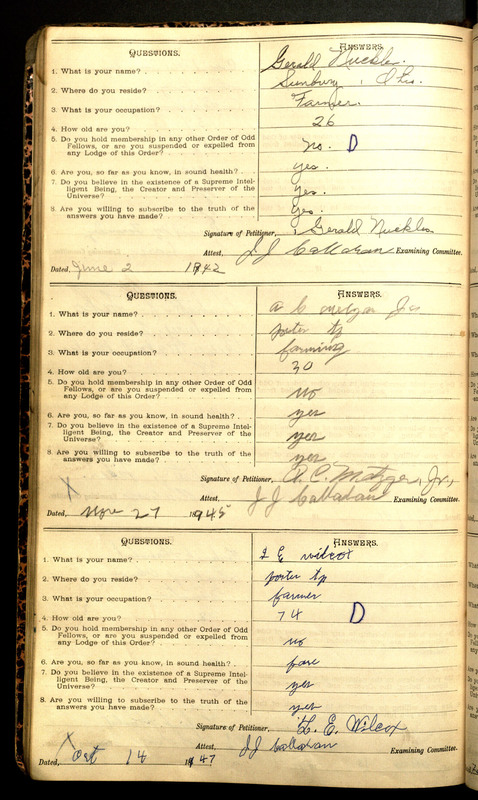 QUESTIONS. ANSWERS.
1. What is your name? Gerald Nuckles
2. Where do you reside? Sunbury, Ohio.
3. What is your occupation? Farmer.
4. How old are you? 26
5. Do you hold membership in any other Order of Odd
Fellows, or are you suspended or expelled from
any Lodge of this Order? No. D
6. Are you, so far as you know, in sound health? yes.
7. Do you believe in the existence of a Supreme Intel-
ligent Being, the Creator and Preserver of the
Universe? yes.
8. Are you willing to subscribe to the truth of the
answers you have made? yes.
Signature of Petitioner, Gerald Nuckles
Attest, J J Callahan Examining Committee.
Dated, June 2 1942
QUESTIONS. ANSWERS.
1. What is your name? A C Metzger Jr
2. Where do you reside? porter tp
3. What is your occupation? farming
4. How old are you? 30
5. Do you hold membership in any other Order of Odd
Fellows, or are you suspended or expelled from
any Lodge of this Order? no
6. Are you, so far as you know, in sound health? yes
7. Do you believe in the existence of a Supreme Intel-
ligent Being, the Creator and Preserver of the
Universe? yes
8. Are you willing to subscribe to the truth of the
answers you have made? yes
Signature of Petitioner, A. C. Metzger, Jr.,
X Attest, J J Callahan Examining Committee.
Dated, 27 1945
QUESTIONS. ANSWERS.
1. What is your name? E wilcox
2. Where do you reside? porter tp
3. What is your occupation? farmer
4. How old are you? 74 D
5. Do you hold membership in any other Order of Odd
Fellows, or are you suspended or expelled from
any Lodge of this Order? no
6. Are you, so far as you know, in sound health? fare
7. Do you believe in the existence of a Supreme Intel-
ligent Being, the Creator and Preserver of the
Universe? yes
8. Are you willing to subscribe to the truth of the
answers you have made? yes
Signature of Petitioner, E. Wilcox
X Attest, J J Callahan Examining Committee.
Dated, oct 14 1947